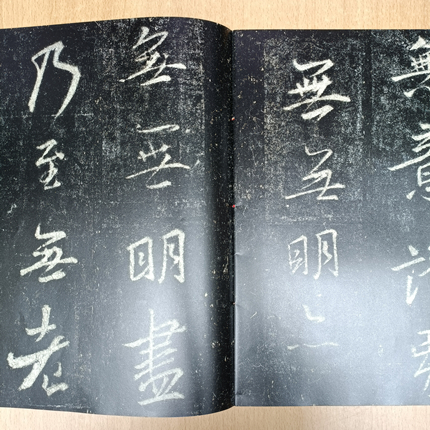 無意識界
無無明亦
無無明盡
乃至無老